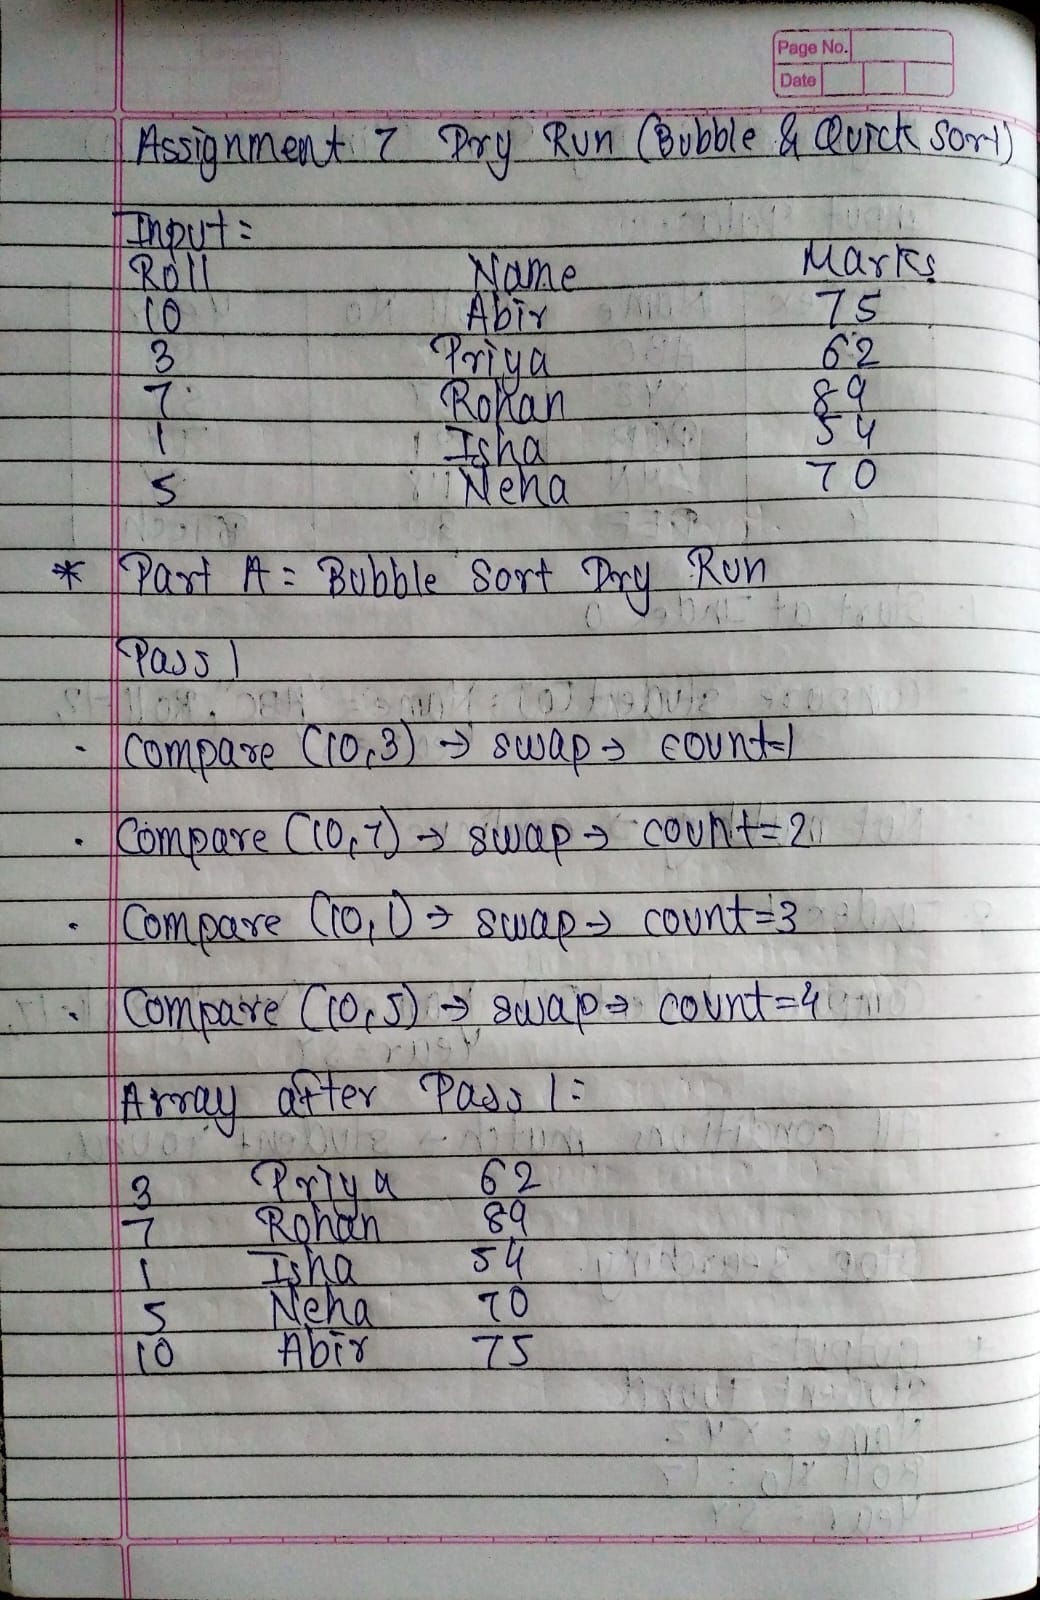 Page No.
Date
Assignment 7 Dry Run (Bubble & Quick Sort)
Input =
Roll Name Marks
10 Abir 75
3 Priya 62
7 Rohan 89
1 Isha 54
5 Neha 70
* Part A = Bubble Sort Dry Run
Pass 1
- Compare (10,3) → swap → count=1
. Compare (10,7) → swap → count=2
. Compare (10,1) → swap → count=3
. Compare (10,5) → swap → count=4
Array after Pass 1 =
3 Priya 62
7 Rohan 89
1 Isha 54
5 Neha 70
10 Abir 75